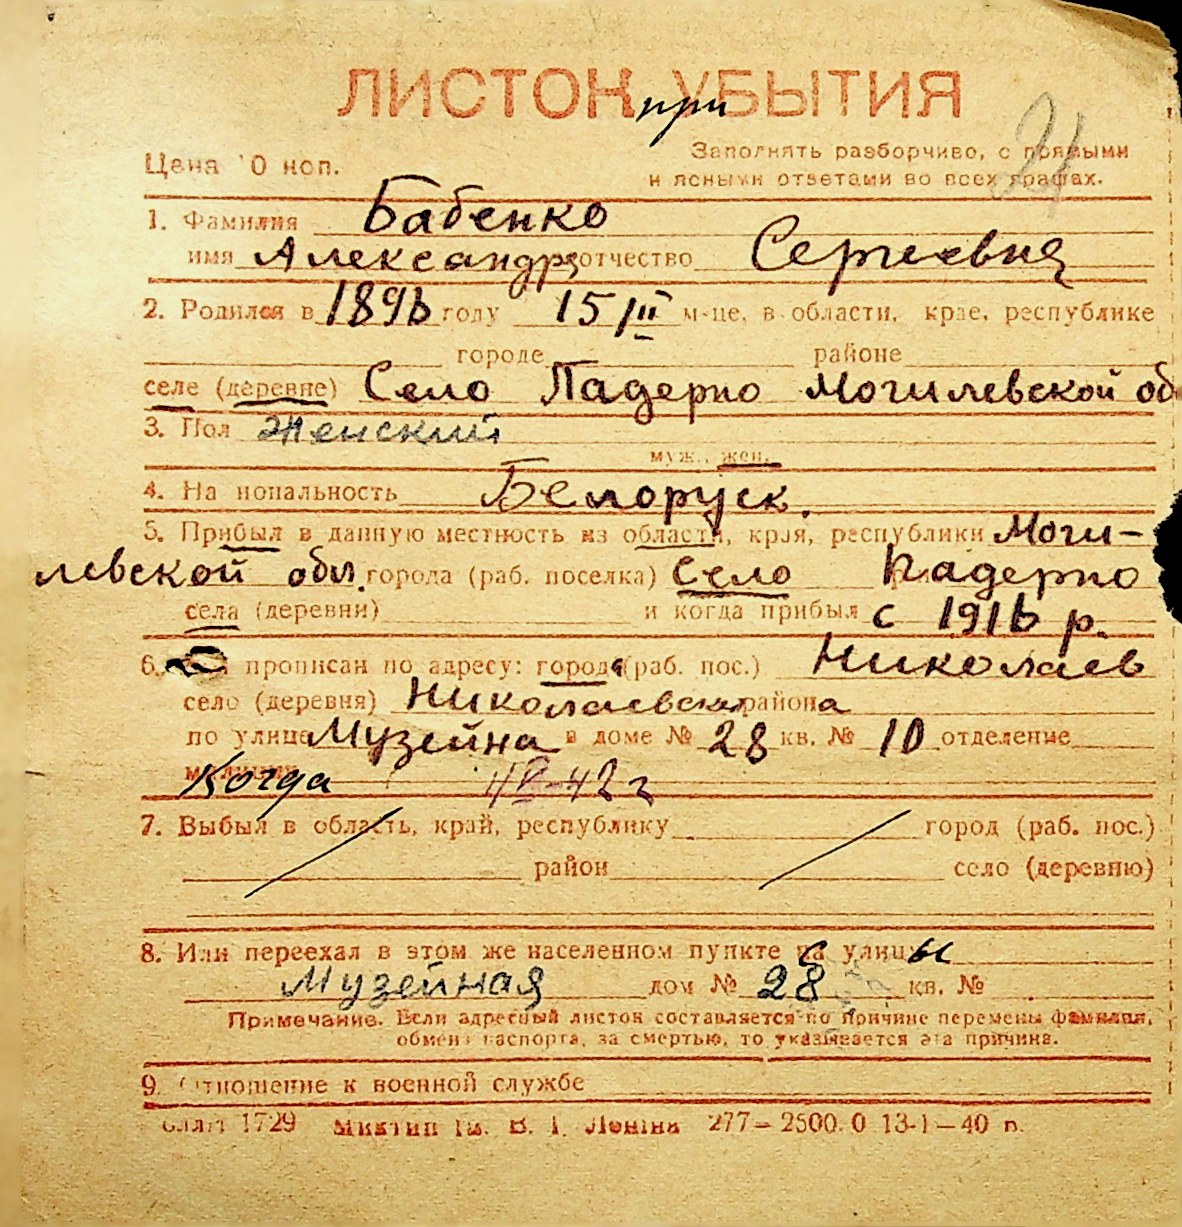 ЛИСТОК при УБЫТИЯ
21
Цена 10 коп.
Заполнять разборчиво, с прямыми
и ясными ответами во всех графах.
1. Фамилия Бабенко
имя Александра отчество Сергеевна
2. Родился в 1896 году 15/III м-це, в области, крае, республике
городе районе
селе (деревне) Село Падерно Могилевской об
3. Пол Женский
муж., жен.
4. Национальность Белоруск.
5. Прибыл в данную местность из области, края, республики Моги-
левской обл. города (раб. поселка) Село Падерно
села (деревни) и когда прибыл с 1916 р.
6. прописан по адресу: города (раб. пос.) Николаев
село (деревня) Николаевская района
по улице Музейна в доме № 28 кв. № 10 отделение
милиции Когда
7. Выбыл в область, край, республику город (раб. пос.)
район село (деревню)
8. Или переехал в этом же населенном пункте с улицы
Музейная дом № 28 кв. №
Примечание. Если адресный листок составляется по причине перемены фамилии,
обмена паспорта, за смертью, то указывается эта причина.
9. Отношение к военной службе
1729 им. В. І. Леніна 277–2500.0 13-I–40 п.